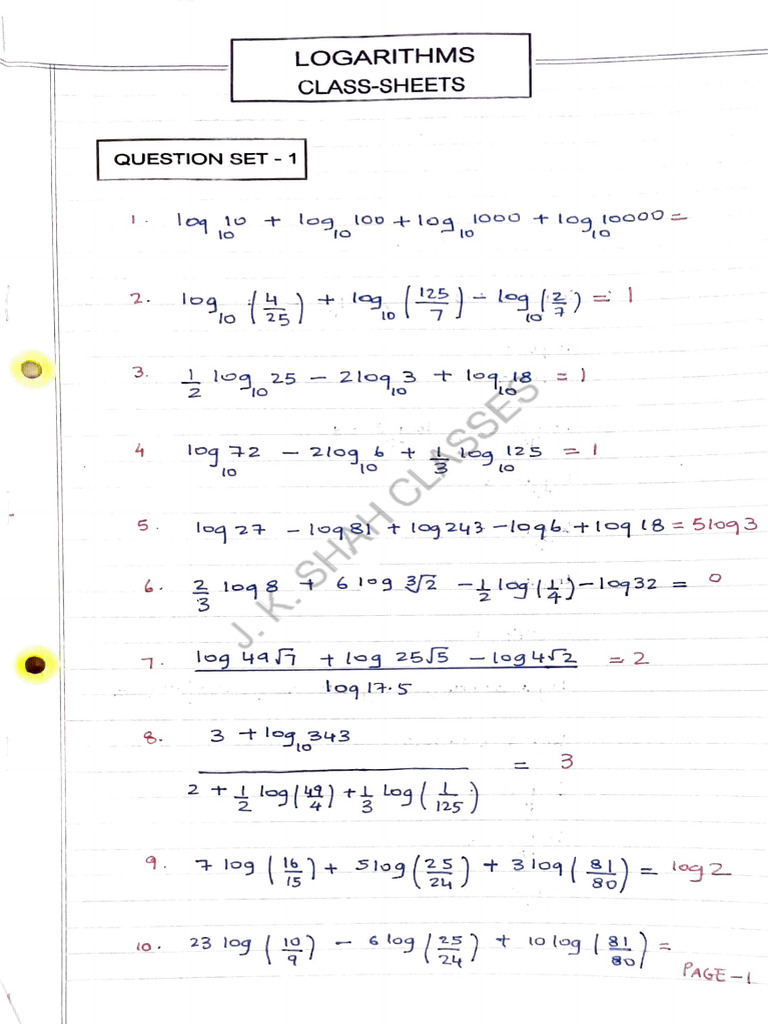 LOGARITHMS
CLASS-SHEETS
QUESTION SET - 1
1. log₁₀10 + log₁₀100 + log₁₀1000 + log₁₀10000 =
2. log₁₀(4/25) + log₁₀(125/7) - log₁₀(2/7) = 1
3. 1/2 log₁₀25 - 2log₁₀3 + log₁₀18 = 1
4 log₁₀72 - 2log₁₀6 + 1/3 log₁₀125 = 1
5. log27 - log81 + log243 - log6 + log18 = 5log3
6. 2/3 log8 + 6 log ∛2 - 1/2 log(1/4) - log32 = 0
7. (log 49√7 + log 25√5 - log4√2) / log17.5 = 2
8. (3 + log₁₀343) / (2 + 1/2 log(49/4) + 1/3 log(1/125)) = 3
9. 7 log(16/15) + 5log(25/24) + 3log(81/80) = log2
10. 23 log(10/9) - 6log(25/24) + 10log(81/80) =
PAGE-1
J. K. SHAH CLASSES